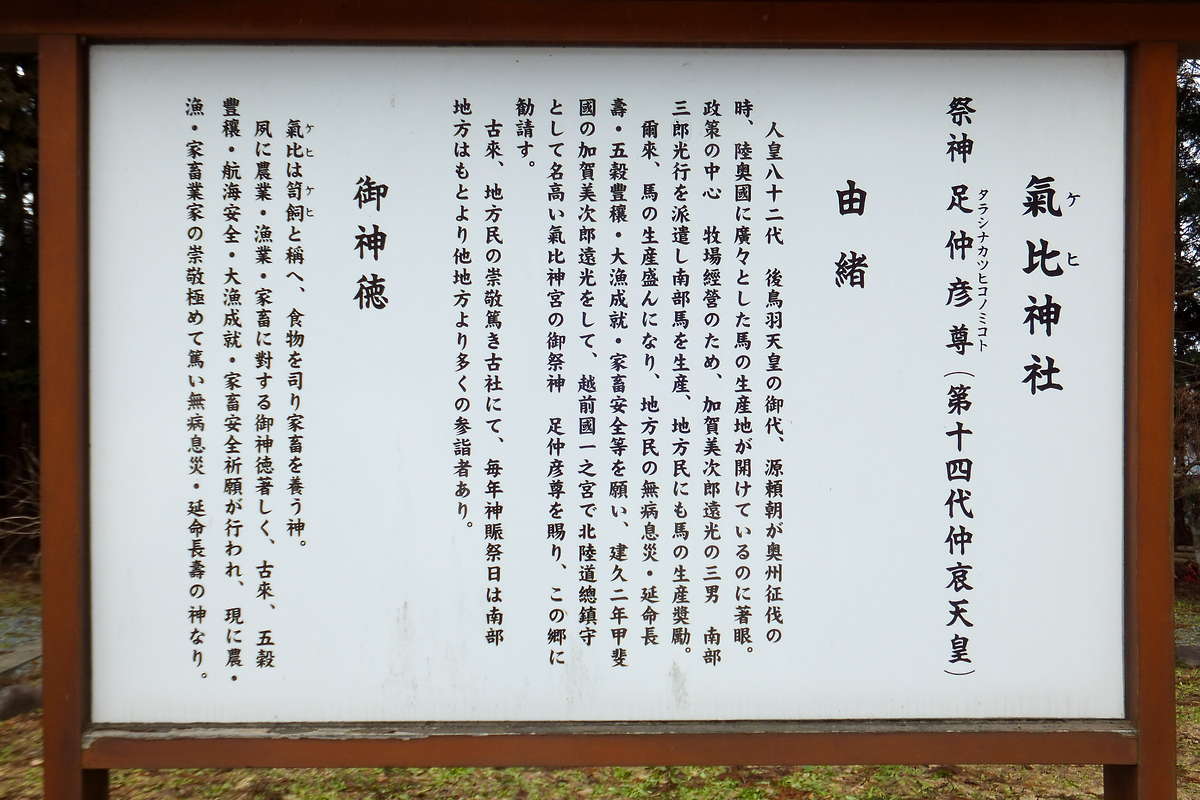 氣比神社
ケヒ
祭神 足仲彦尊(第十四代仲哀天皇)
タラシナカツヒコノミコト
由緒
人皇八十二代 後鳥羽天皇の御代、源頼朝が奥州征伐の
時、陸奥國に廣々とした馬の生産地が開けているのに著眼。
政策の中心 牧場經營のため、加賀美次郎遠光の三男 南部
三郎光行を派遣し南部馬を生産、地方民にも馬の生産奬勵。
爾來、馬の生産盛んになり、地方民の無病息災・延命長
壽・五穀豊穰・大漁成就・家畜安全等を願い、建久二年甲斐
國の加賀美次郎遠光をして、越前國一之宮で北陸道總鎮守
として名高い氣比神宮の御祭神 足仲彦尊を賜り、この郷に
勧請す。
古來、地方民の崇敬篤き古社にて、毎年神賑祭日は南部
地方はもとより他地方より多くの参詣者あり。
御神徳
氣比は笥飼と稱へ、食物を司り家畜を養う神。
ケヒ ケヒ
夙に農業・漁業・家畜に對する御神徳著しく、古來、五穀
豊穰・航海安全・大漁成就・家畜安全祈願が行われ、現に農・
漁・家畜業家の崇敬極めて篤い無病息災・延命長壽の神なり。